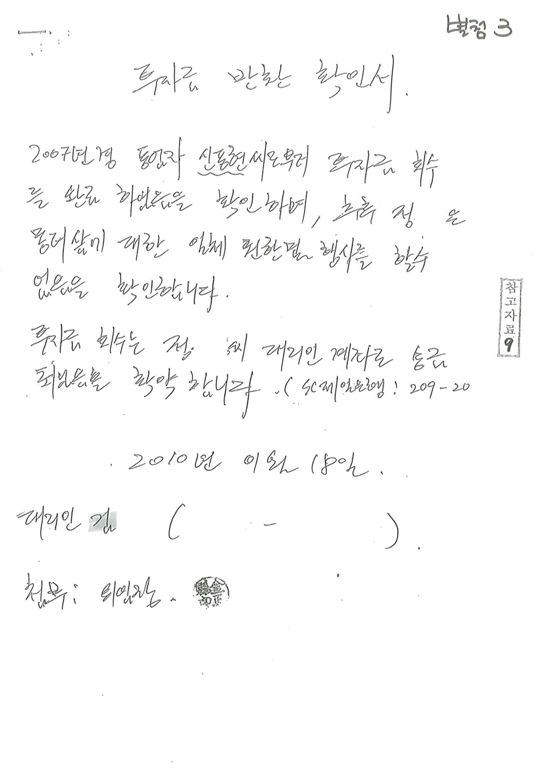 별첨 3
투자금 반환 확인서.
2007년경 동업자 신돈현씨로부터 투자금 회수
를 완료 하였음을 확인하며, 추후 정 은
대한 일체 권한을 행사를 할수
없음을 확인합니다.
투자금 회수는 정 씨 대리인 계좌로 송금
되었음을 확약 합니다. (SC제일은행: 209-20
2010년 01월 18일.
대리인 김 ( - ).
첨부: 위임장.
참고자료 9